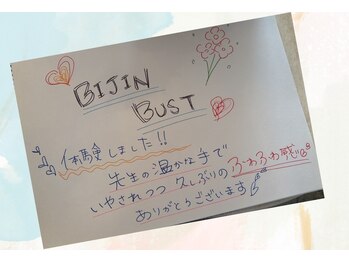 BIJIN
BUST
体験しました!!
先生の温かな手で
いやされつつ 久しぶりのふわふわ感
ありがとうございます